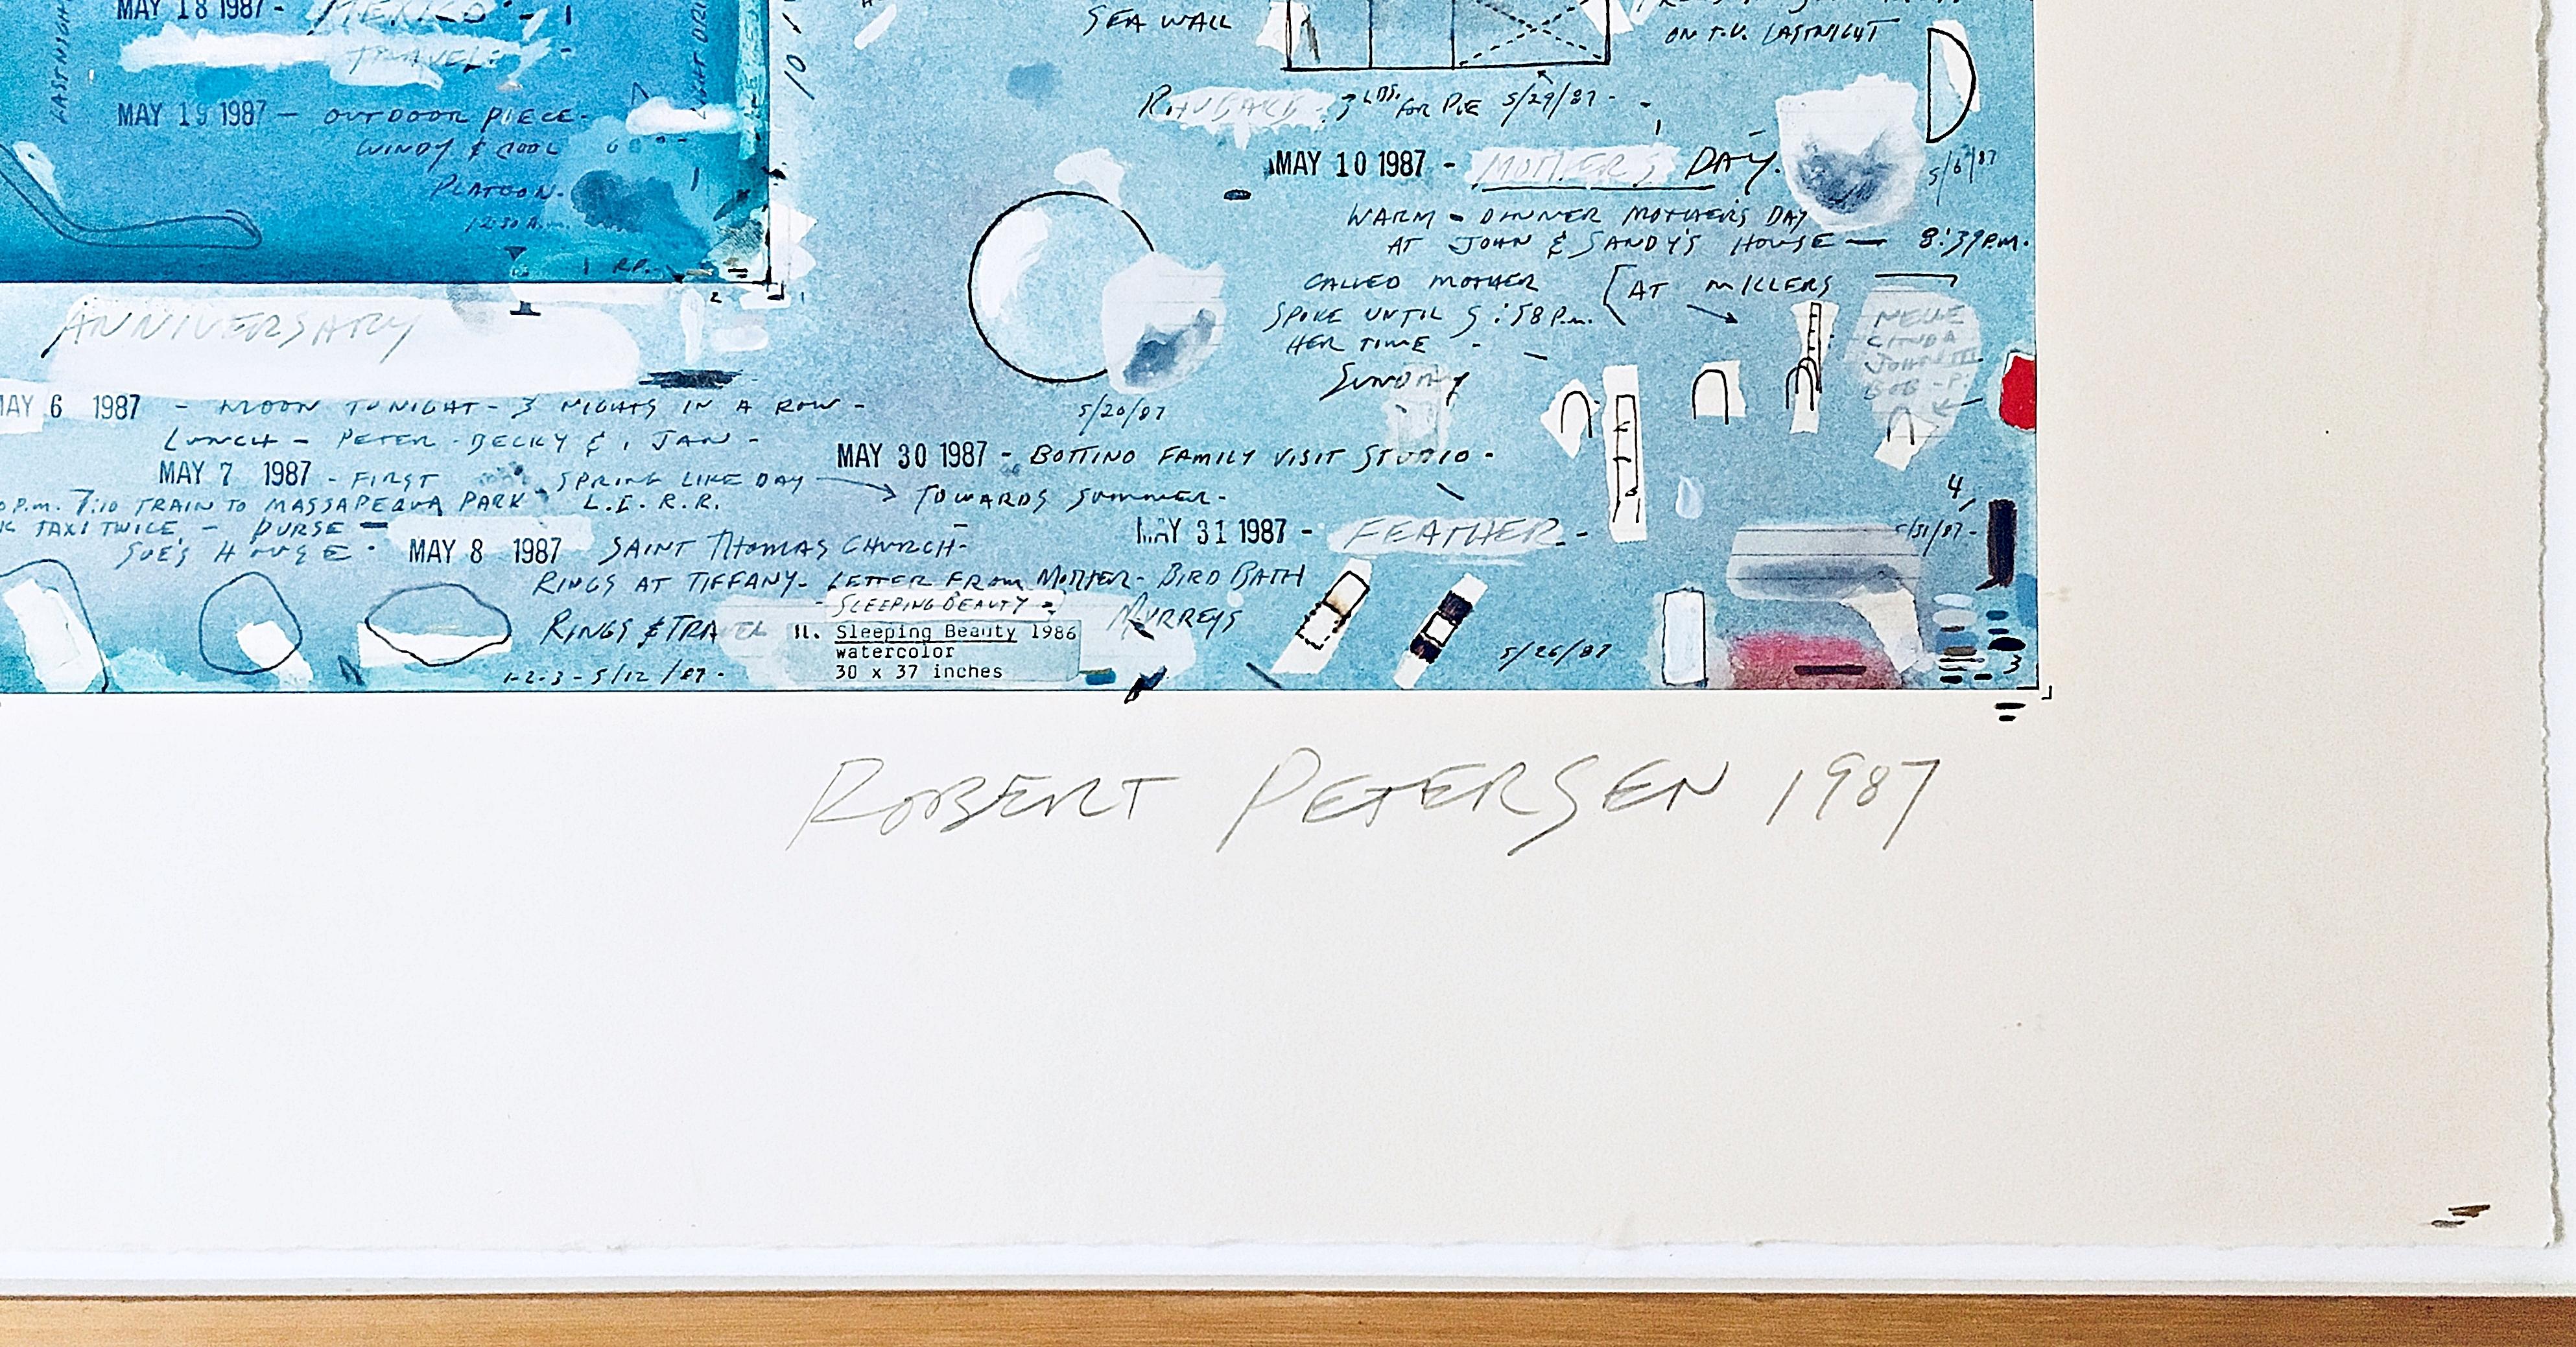 MAY 18 1987 - MEXICO -
TRAVEL
LASTNIGHT
MAY 19 1987 - OUTDOOR PIECE -
WINDY & COOL
PLATOON.
12:30 A.M.
R.P.
2
1
ANNIVERSARY
MAY 6 1987 - MOON TONIGHT - 3 NIGHTS IN A ROW -
LUNCH - PETER - BECKY & JAN -
MAY 7 1987 - FIRST SPRING LIKE DAY
P.M. 7:10 TRAIN TO MASSAPEQUA PARK L.I.R.R.
TAXI TWICE - PURSE -
SUE'S HOUSE.
MAY 8 1987 SAINT THOMAS CHURCH -
RINGS AT TIFFANY - LETTER FROM MOTHER - BIRD BATH
SLEEPING BEAUTY
MURREYS
RINGS & TRAVEL
11. Sleeping Beauty 1986
watercolor
30 x 37 inches
1-2-3 - 5/12/87 -
SEA WALL
ON T.V. LASTNIGHT
RHUBARB 3 LBS. FOR PIE 5/29/87 -
MAY 10 1987 - MOTHER'S DAY.
5/6/87
WARM - DINNER MOTHER'S DAY
AT JOHN & SANDY'S HOUSE — 8:39 P.M.
CALLED MOTHER (AT MILLERS
SPOKE UNTIL 5:58 P.M.
HER TIME -
SUNDAY
NELLE
LINDA
JOHN III
BOB - P.
5/20/87
MAY 30 1987 - BOTTINO FAMILY VISIT STUDIO -
TOWARDS SUMMER -
MAY 31 1987 - FEATHER -
4
5/31/87 -
5/26/87
3
ROBERT PETERSEN 1987